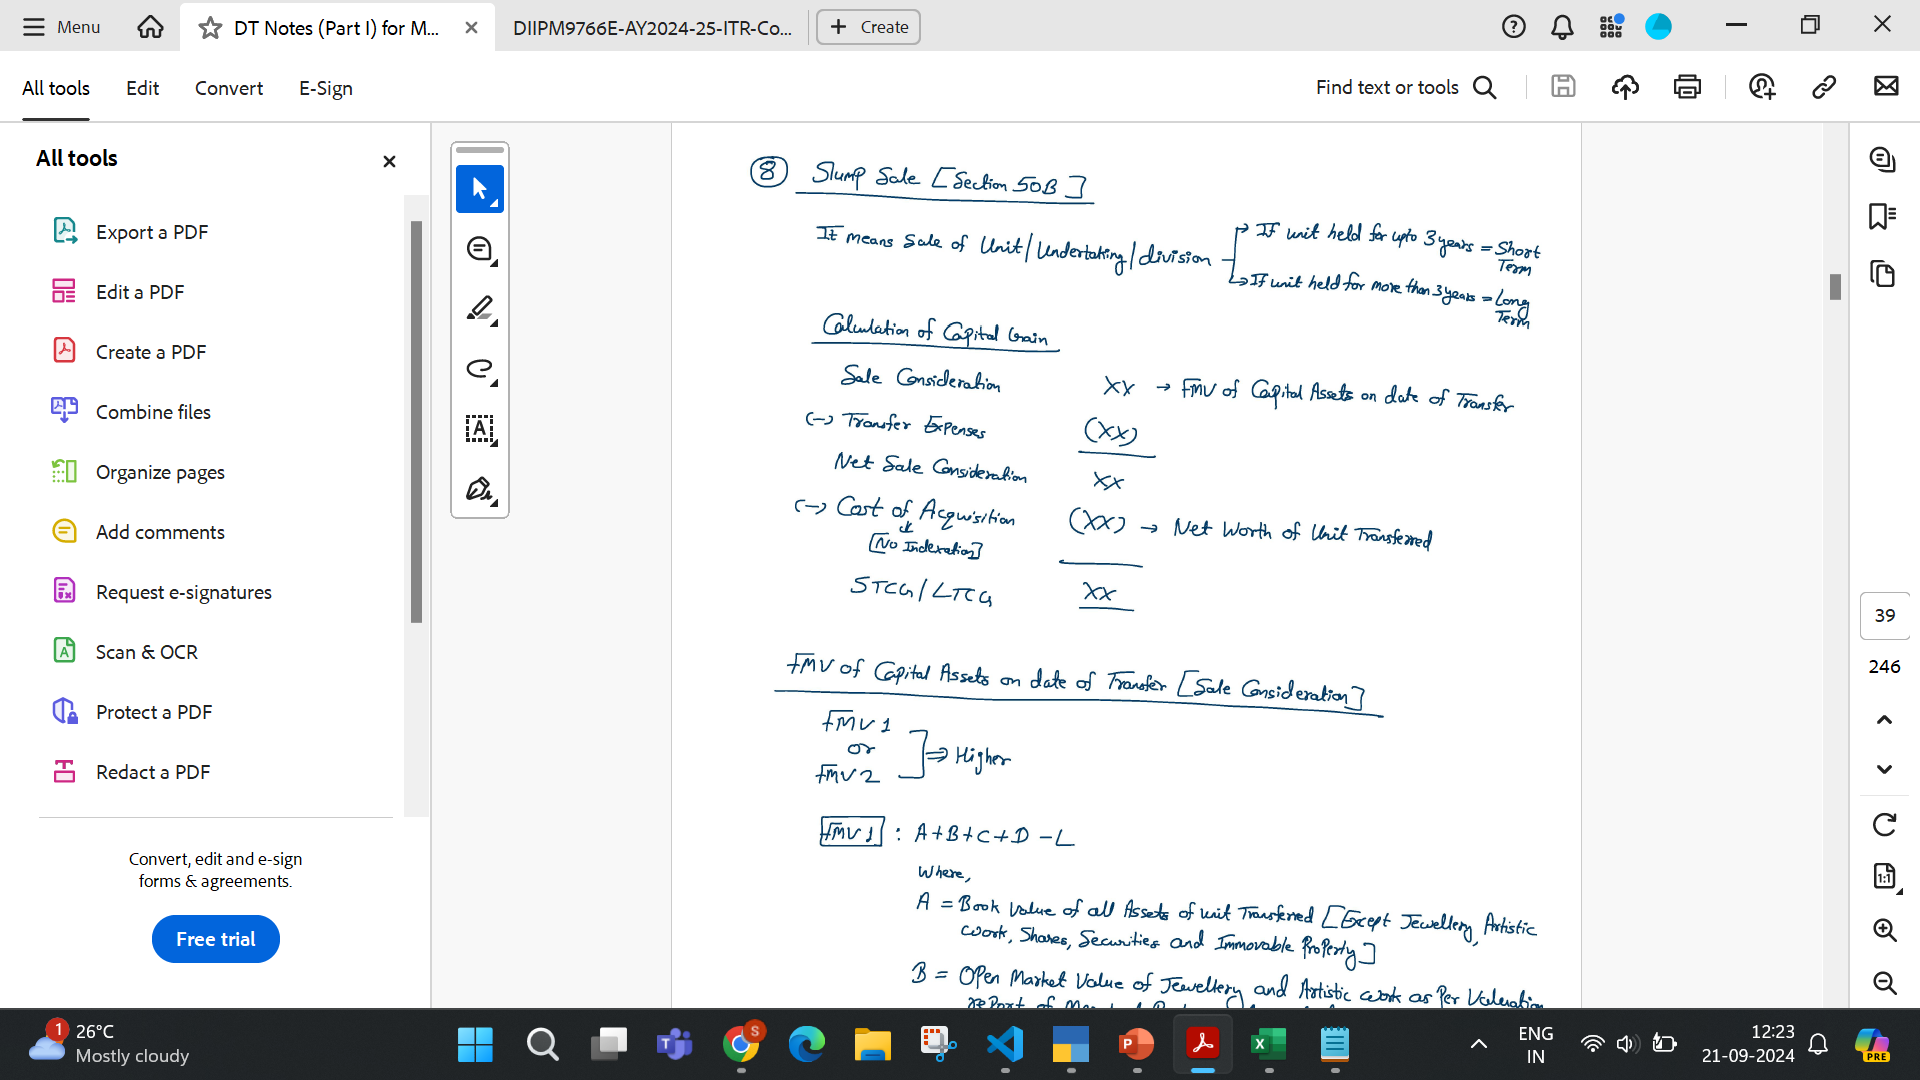 Menu
DT Notes (Part I) for M...
DIIPM9766E-AY2024-25-ITR-Co...
Create
All tools
Edit
Convert
E-Sign
Find text or tools
All tools
Export a PDF
Edit a PDF
Create a PDF
Combine files
Organize pages
Add comments
Request e-signatures
Scan & OCR
Protect a PDF
Redact a PDF
Convert, edit and e-sign
forms & agreements.
Free trial
8 Slump Sale [Section 50B]
It means Sale of Unit/Undertaking/division
→ If unit held for upto 3 years = Short Term
→ If unit held for more than 3 years = Long Term
Calculation of Capital Gain
Sale Consideration XX → FMV of Capital Assets on date of Transfer
(-) Transfer Expenses (XX)
Net Sale Consideration XX
(-) Cost of Acquisition (XX) → Net Worth of Unit Transferred
[No Indexation]
STCG/LTCG XX
FMV of Capital Assets on date of Transfer [Sale Consideration]
FMV 1
or ⇒ Higher
FMV 2
FMV 1 : A+B+C+D-L
Where,
A = Book Value of all Assets of unit Transferred [Except Jewellery, Artistic
work, Shares, Securities and Immovable Property]
B = Open Market Value of Jewellery and Artistic work as Per Valuation
report of
39
246
1:1
1
26°C
Mostly cloudy
ENG
IN
12:23
21-09-2024
PRE